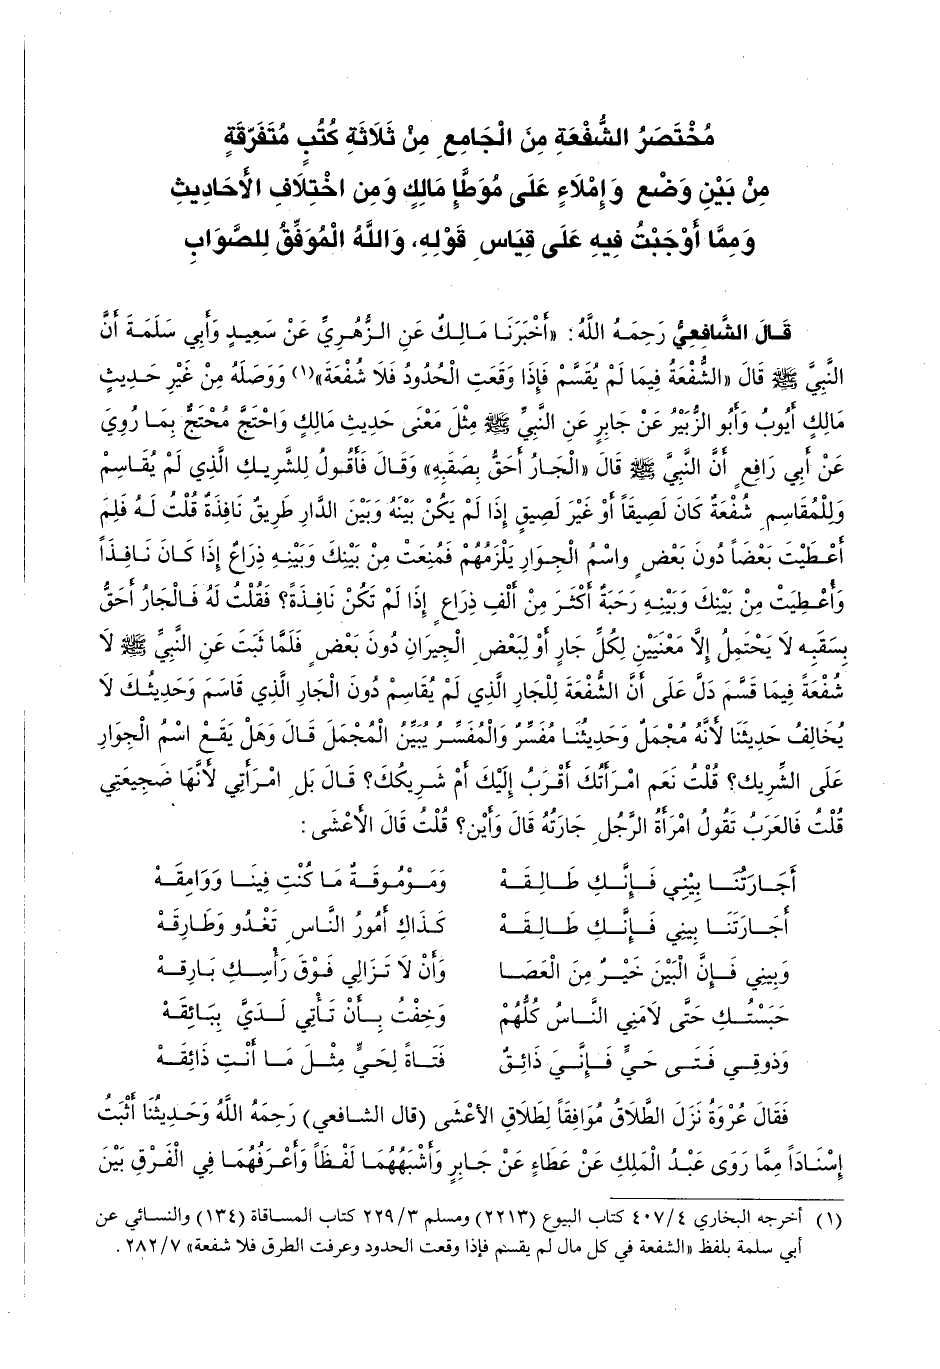 مُخْتَصَرُ الشُّفْعَةِ مِنَ الْجَامِعِ مِنْ ثَلَاثَةِ كُتُبٍ مُتَفَرّقَةٍ
مِنْ بَيْنِ وَضْعِ وَإِمْلَاءٍ عَلَى مُوَطَّإِ مَالِكٍ وَمِنِ اخْتِلَافِ الْأَحَادِيثِ
وَمِمَّا أَوْجَبْتُ فِيهِ عَلَى قِيَاسِ قَوْلِهِ، وَاللَّهُ الْمُوَفِّقُ لِلصَّوَابِ
قَالَ الشَّافِعِيُّ رَحِمَهُ اللَّهُ: «أَخْبَرَنَا مَالِكٌ عَنِ الزُّهْرِيِّ عَنْ سَعِيدٍ وَأَبِي سَلَمَةَ أَنَّ
النَّبِيَّ ﷺ قَالَ «الشُّفْعَةُ فِيمَا لَمْ يُقَسَّمْ فَإِذَا وَقَعَتِ الْحُدُودُ فَلَا شُفْعَةَ»(١) وَوَصَلَهُ مِنْ غَيْرِ حَدِيثِ
مَالِكٍ أَيُّوبُ وَأَبُو الزُّبَيْرُ عَنْ جَابِرٍ عَنِ النَّبِيِّ ﷺ مِثْلَ مَعْنَى حَدِيثِ مَالِكٍ وَاحْتَجَّ مُحْتَجٌّ بِمَا رُوِيَ
عَنْ أَبِي رَافِعٍ أَنَّ النَّبِيَّ ﷺ قَالَ «الْجَارُ أَحَقُّ بِصَقَبِهِ» وَقَالَ فَأَقُولُ لِلشَّرِيكِ الَّذِي لَمْ يُقَاسِمْ
وَلِلْمُقَاسِمِ شُفْعَةٌ كَانَ لَصِيقَاً أَوْ غَيْرَ لَصِيقٍ إِذَا لَمْ يَكُنْ بَيْنَهُ وَبَيْنَ الدَّارِ طَرِيقٌ نَافِذَةٌ قُلْتُ لَهُ فَلِمَ
أَعْطَيْتَ بَعْضَاً دُونَ بَعْضٍ وَاسْمُ الْجِوَارِ يَلْزَمُهُمْ فَمُنِعَتْ مِنْ بَيْنِكَ وَبَيْنِهِ ذِرَاعٌ إِذَا كَانَ نَافِذَاً
وَأُعْطِيَتْ مِنْ بَيْنِكَ وَبَيْنِهِ رَحَبَةٌ أَكْثَرَ مِنْ أَلْفِ ذِرَاعٍ إِذَا لَمْ تَكُنْ نَافِذَةً؟ فَقُلْتُ لَهُ فَالْجَارُ أَحَقُّ
بِسَقَبِهِ لَا يَحْتَمِلُ إِلَّا مَعْنَيَيْنِ لِكُلِّ جَارٍ أَوْ لِبَعْضِ الْجِيرَانِ دُونَ بَعْضٍ فَلَمَّا ثَبَتَ عَنِ النَّبِيِّ ﷺ لَا
شُفْعَةً فِيمَا قَسَّمَ دَلَّ عَلَى أَنَّ الشُّفْعَةَ لِلْجَارِ الَّذِي لَمْ يُقَاسِمْ دُونَ الْجَارِ الَّذِي قَاسَمَ وَحَدِيثُكَ لَا
يُخَالِفُ حَدِيثَنَا لأَنَّهُ مُجْمَلٌ وَحَدِيثُنَا مُفَسِّرٌ وَالْمُفَسِّرُ يُبَيِّنُ الْمُجْمَلَ قَالَ وَهَلْ يَقَعْ اسْمُ الْجِوَارِ
عَلَى الشَّرِيكِ؟ قُلْتُ نَعَمِ امْرَأَتُكَ أَقْرَبُ إِلَيْكَ أَمْ شَرِيكُكَ؟ قَالَ بَلِ امْرَأَتِي لأَنَّهَا ضَجِيعَتِي
قُلْتُ فَالعَرَبُ تَقُولُ امْرَأَةُ الرَّجُلِ جَارَتُهُ قَالَ وَأَيْنَ؟ قُلْتُ قَالَ الأَعْشَى:
أَجَارَتُنَا بِيْنِي فَإِنَّكِ طَالِقَهْ وَمَوْمُوقَةٌ مَا كُنْتِ فِينَا وَوَامِقَهْ
أَجَارَتَنَا بِيني فَإِنَّكِ طَالِقَهْ كَذَاكِ أُمُورُ النَّاسِ تَغْدُو وَطَارِقَهْ
وَبِينِي فَإِنَّ الْبَيْنَ خَيْرٌ مِنَ الْعَصَا وَأَنْ لَا تَزَالِي فَوْقَ رَأْسِكِ بَارِقهْ
حَبَسْتُكِ حَتَّى لَامَنِي النَّاسُ كُلُّهُمْ وَخِفْتُ بِأَنْ تَأْتِي لَدَيَّ بِبَائِقَهْ
وَذوقِي فَتَى حَيٍّ فَإِنِّيَ ذَائِقٌ فَتَاةً لِحَيٍّ مِثْلَ مَا أَنْتِ ذَائِقَهْ
فَقَالَ عُرْوَةُ نَزَلَ الطَّلَاقُ مُوَافِقَاً لِطَلَاقِ الأَعْشَى (قال الشافعي) رَحِمَهُ اللَّهُ وَحَدِيثُنَا أَثْبَتُ
إِسْنَادَاً مِمَّا رَوَى عَبْدُ الْمَلِكِ عَنْ عَطَاءٍ عَنْ جَابِرٍ وَأَشْبَهُهُمَا لَفْظَاً وَأَعْرَفُهُمَا فِي الْفَرْقِ بَيْنَ
(١) أخرجه البخاري ٤٠٧/٤ كتاب البيوع (٢٢١٣) ومسلم ٢٢٩/٣ كتاب المساقاة (١٣٤) والنسائي عن
أبي سلمة بلفظ «الشفعة في كل مال لم يقسم فإذا وقعت الحدود وعرفت الطرق فلا شفعة» ٢٨٢/٧.